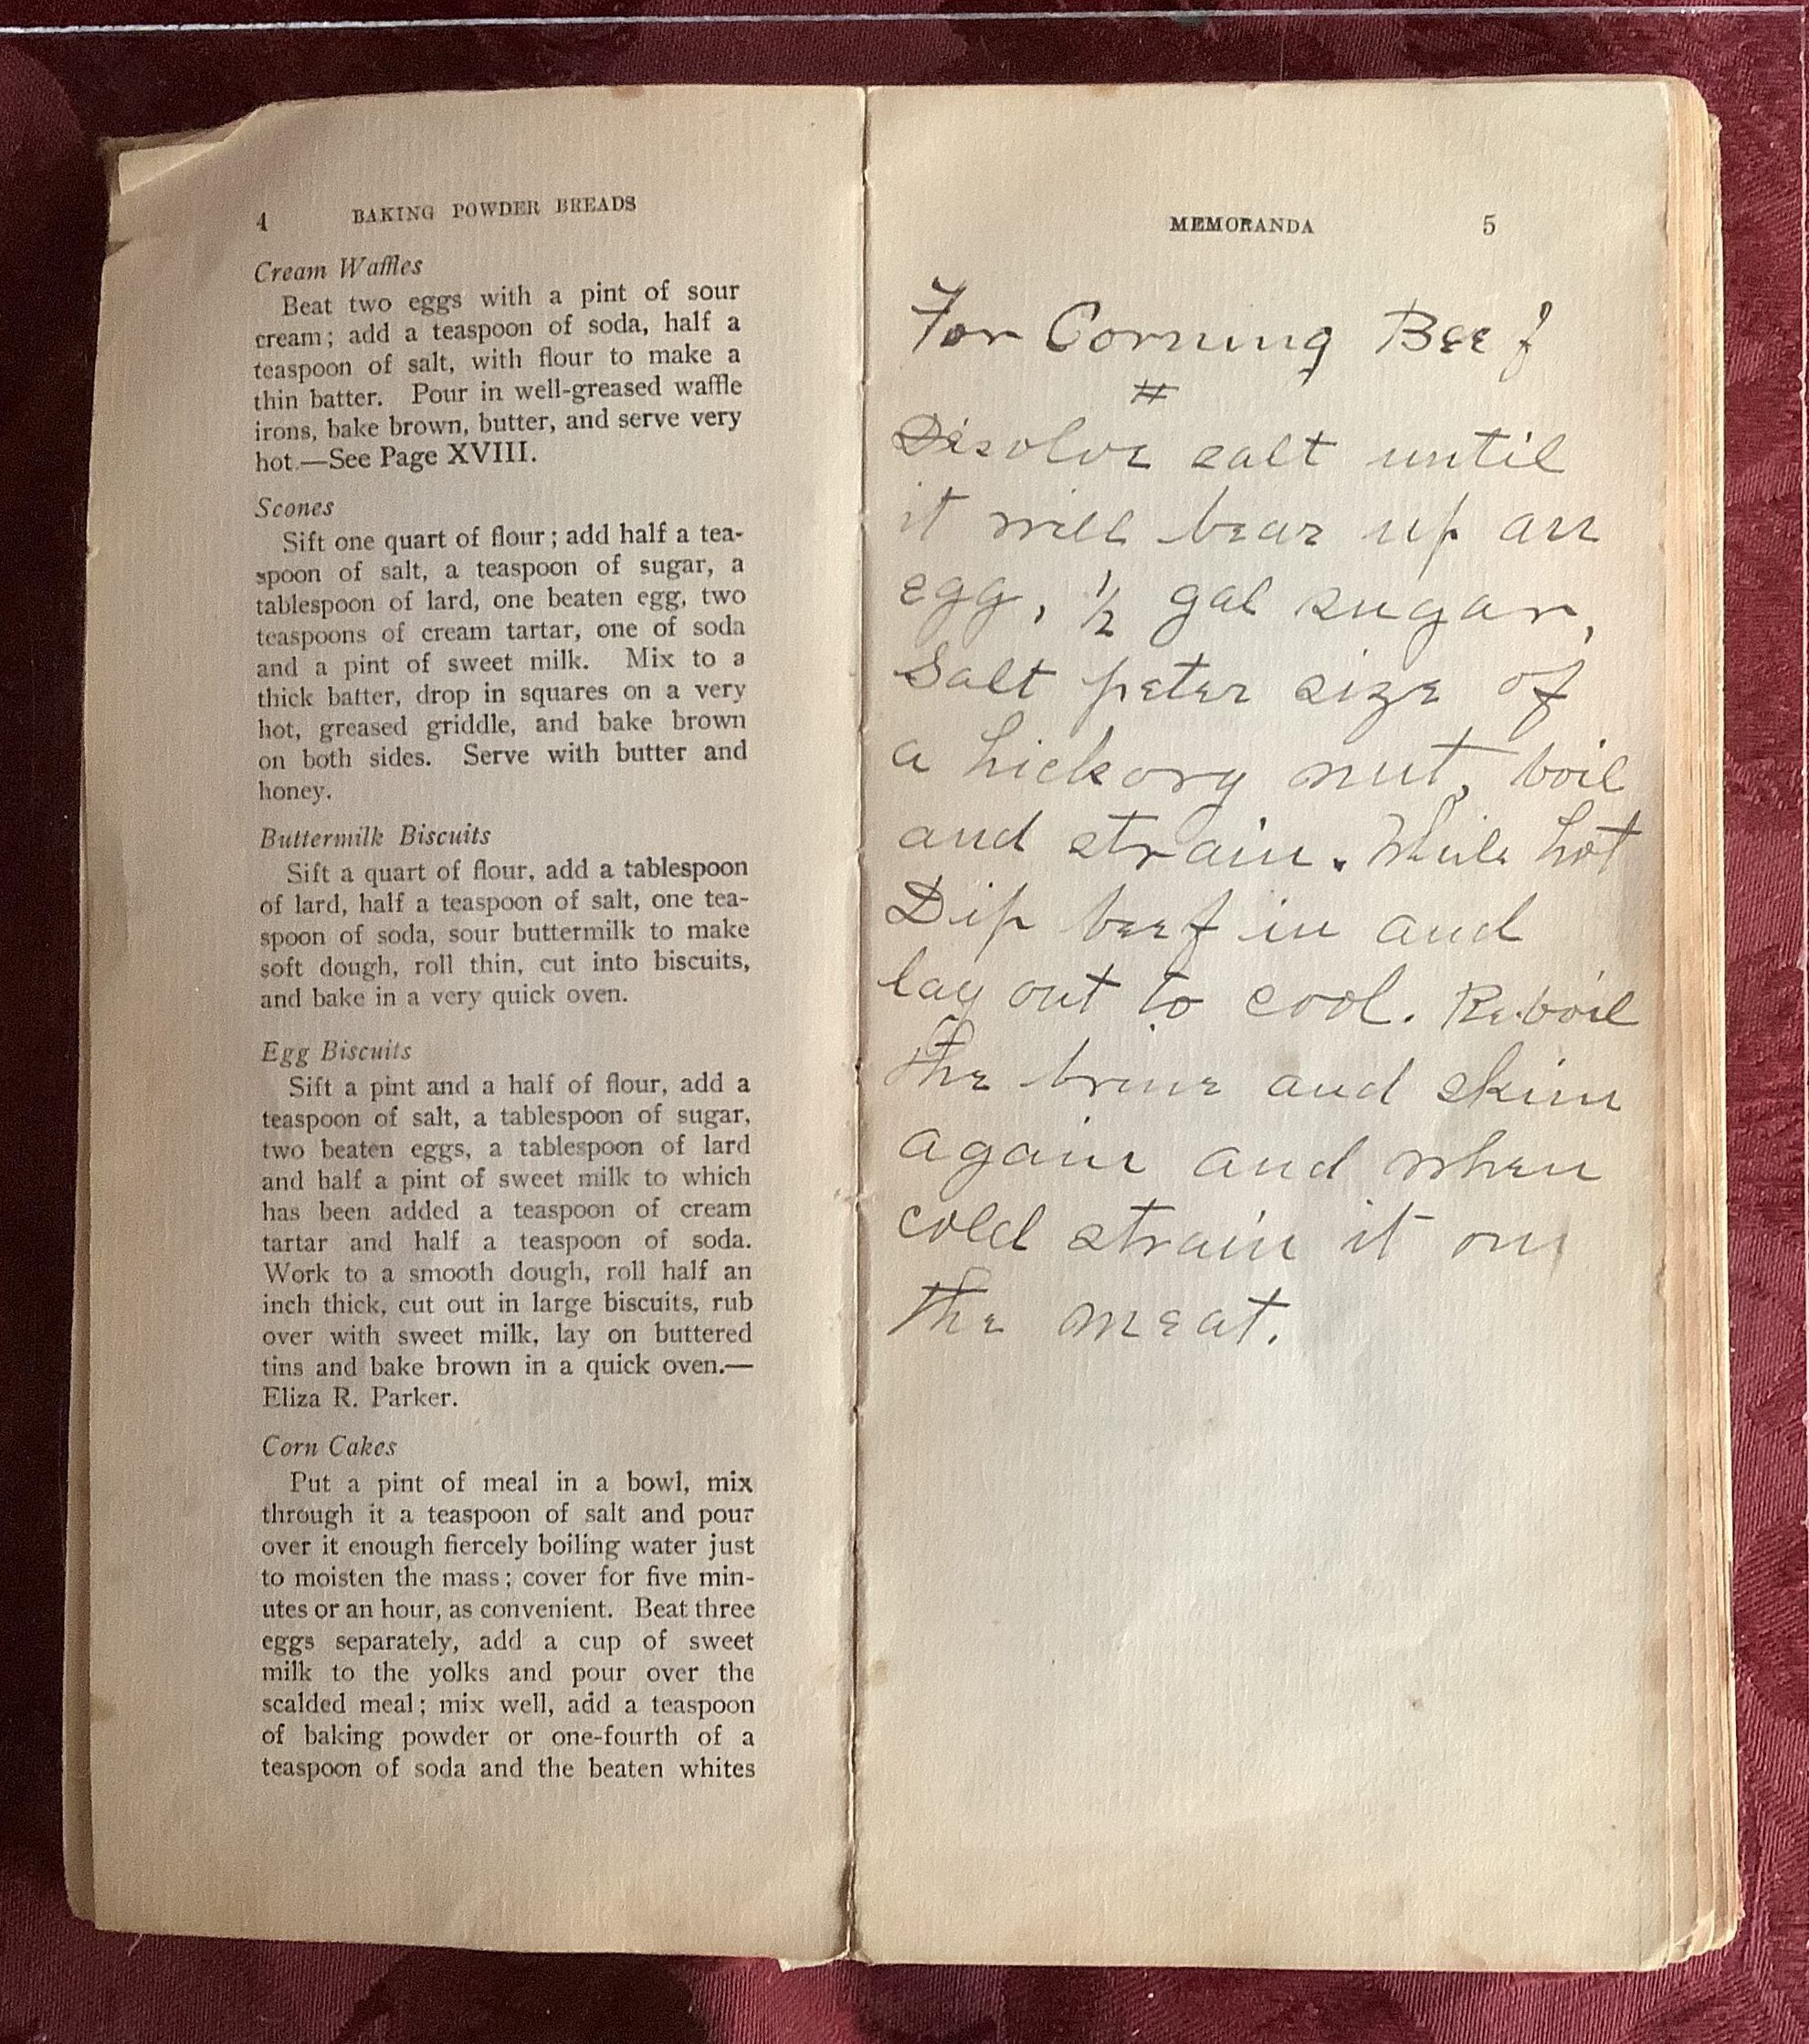 4 BAKING POWDER BREADS
Cream Waffles
Beat two eggs with a pint of sour
cream; add a teaspoon of soda, half a
teaspoon of salt, with flour to make a
thin batter. Pour in well-greased waffle
irons, bake brown, butter, and serve very
hot.—See Page XVIII.
Scones
Sift one quart of flour; add half a tea-
spoon of salt, a teaspoon of sugar, a
tablespoon of lard, one beaten egg, two
teaspoons of cream tartar, one of soda
and a pint of sweet milk. Mix to a
thick batter, drop in squares on a very
hot, greased griddle, and bake brown
on both sides. Serve with butter and
honey.
Buttermilk Biscuits
Sift a quart of flour, add a tablespoon
of lard, half a teaspoon of salt, one tea-
spoon of soda, sour buttermilk to make
soft dough, roll thin, cut into biscuits,
and bake in a very quick oven.
Egg Biscuits
Sift a pint and a half of flour, add a
teaspoon of salt, a tablespoon of sugar,
two beaten eggs, a tablespoon of lard
and half a pint of sweet milk to which
has been added a teaspoon of cream
tartar and half a teaspoon of soda.
Work to a smooth dough, roll half an
inch thick, cut out in large biscuits, rub
over with sweet milk, lay on buttered
tins and bake brown in a quick oven.—
Eliza R. Parker.
Corn Cakes
Put a pint of meal in a bowl, mix
through it a teaspoon of salt and pour
over it enough fiercely boiling water just
to moisten the mass; cover for five min-
utes or an hour, as convenient. Beat three
eggs separately, add a cup of sweet
milk to the yolks and pour over the
scalded meal; mix well, add a teaspoon
of baking powder or one-fourth of a
teaspoon of soda and the beaten whites
MEMORANDA 5
For Corning Beef
#
Disolve salt until
it will bear up an
egg, ½ gal sugar,
Salt peter size of
a hickory nut, boil
and strain. While hot
Dip beef in and
lay out to cool. Re-boil
the brine and skim
again and when
cold strain it on
the meat.